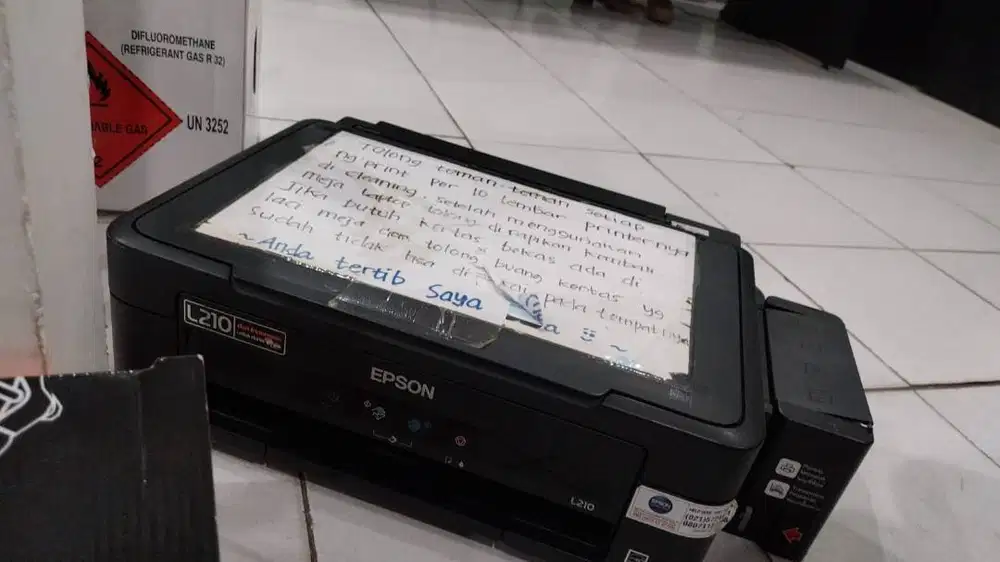 DIFLUOROMETHANE
(REFRIGERANT GAS R 32)
ABLE GAS
UN 3252
2
Tolong teman-teman setiap
ng print per 10 lembar printernya
di cleaning, setelah menggunakan
meja laptop tolong dirapikan kembali
Jika butuh kertas bekas ada di
laci meja dan tolong buang kertas yg
sudah tidak bisa di pada tempatnya
~ Anda tertib Saya a ~
L210
EPSON
L210
(021)